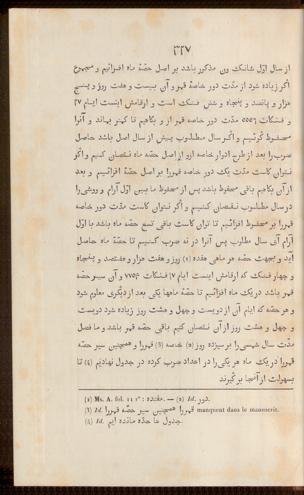 ٣٢٧
از سال اوّل شانك ون مذكور باشد بر اصل حصّهٔ ماه افزائيم و مجموع
اگر زياده شود از مدّت دور خاصهٔ قمر و آن بيست و هفت روز و پنج
هزار و پانصد و پنجاه و شش فنك است و ارقامش اينست ايام ٢٧
و فنكات ٥٥٥٦ مدّت دور خاصه قمر از و بكاهيم تا كمتر بماند و آنرا
محفوظ گوئيم و اگر سال مطلوب پيش از سال اصل باشد حاصل
ضرب را بعد از طرح ادوار خاصه ازو از اصل حصّه ماه نقصان كنيم و اگو
نتوان كاست مدّت يك دور خاصه قمررا بر اصل حصّه افزائيم و بعد
از آن بكاهيم باقى محفوظ باشد پس از محفوظ ما بين اوّل آرام و
در سال مطلوب نقصان كنيم و اگر نتوان كاست مدّت دور خاصه
قمررا بر محفوظ افزائيم تا توان كاست باقى حصّهٔ ماه باشد با اوّل
آرام آى سال مطلوب پس آنرا در نه ضرب كنيم تا حصّهٔ ماه حاصل
آيد و بجهت حصّه هر ماهى هفده (١) روز و هفت هزار و هفتصد و پنجاه
و چهار فنك كه ارقامش اينست ايام ١٧ فنكات ٧٧٥۴ و آن سير حصّه
قمر باشد در يك ماه افزائيم تا حصّهٔ ماهها يكى بعد از ديگرى معلوم شود
و هر حصّه كه ايام آن از دويست و چهل و هشت روز زياده شود دويست
و چهل و هشت روز از آن نقصان كنيم باقى حصّه قمر باشد و ما فصل
مدّت سال شمسى را بر سيزده روز (٢) خاصه (٣) قمررا و همچنين سير حصّه
قمررا در يك ماه هر يكى را در اعداد ضرب كرده در جدول نهاديم (۴) تا
بسهولت از آنجا بر گيرند
(١) Ms. A. fol. ١١ r° : هفده. — (٢) Id. دور.
(٣) Id. قمررا همچنين سير حصّه قمررا manquent dans le manuscrit.
(۴) Id. جدول